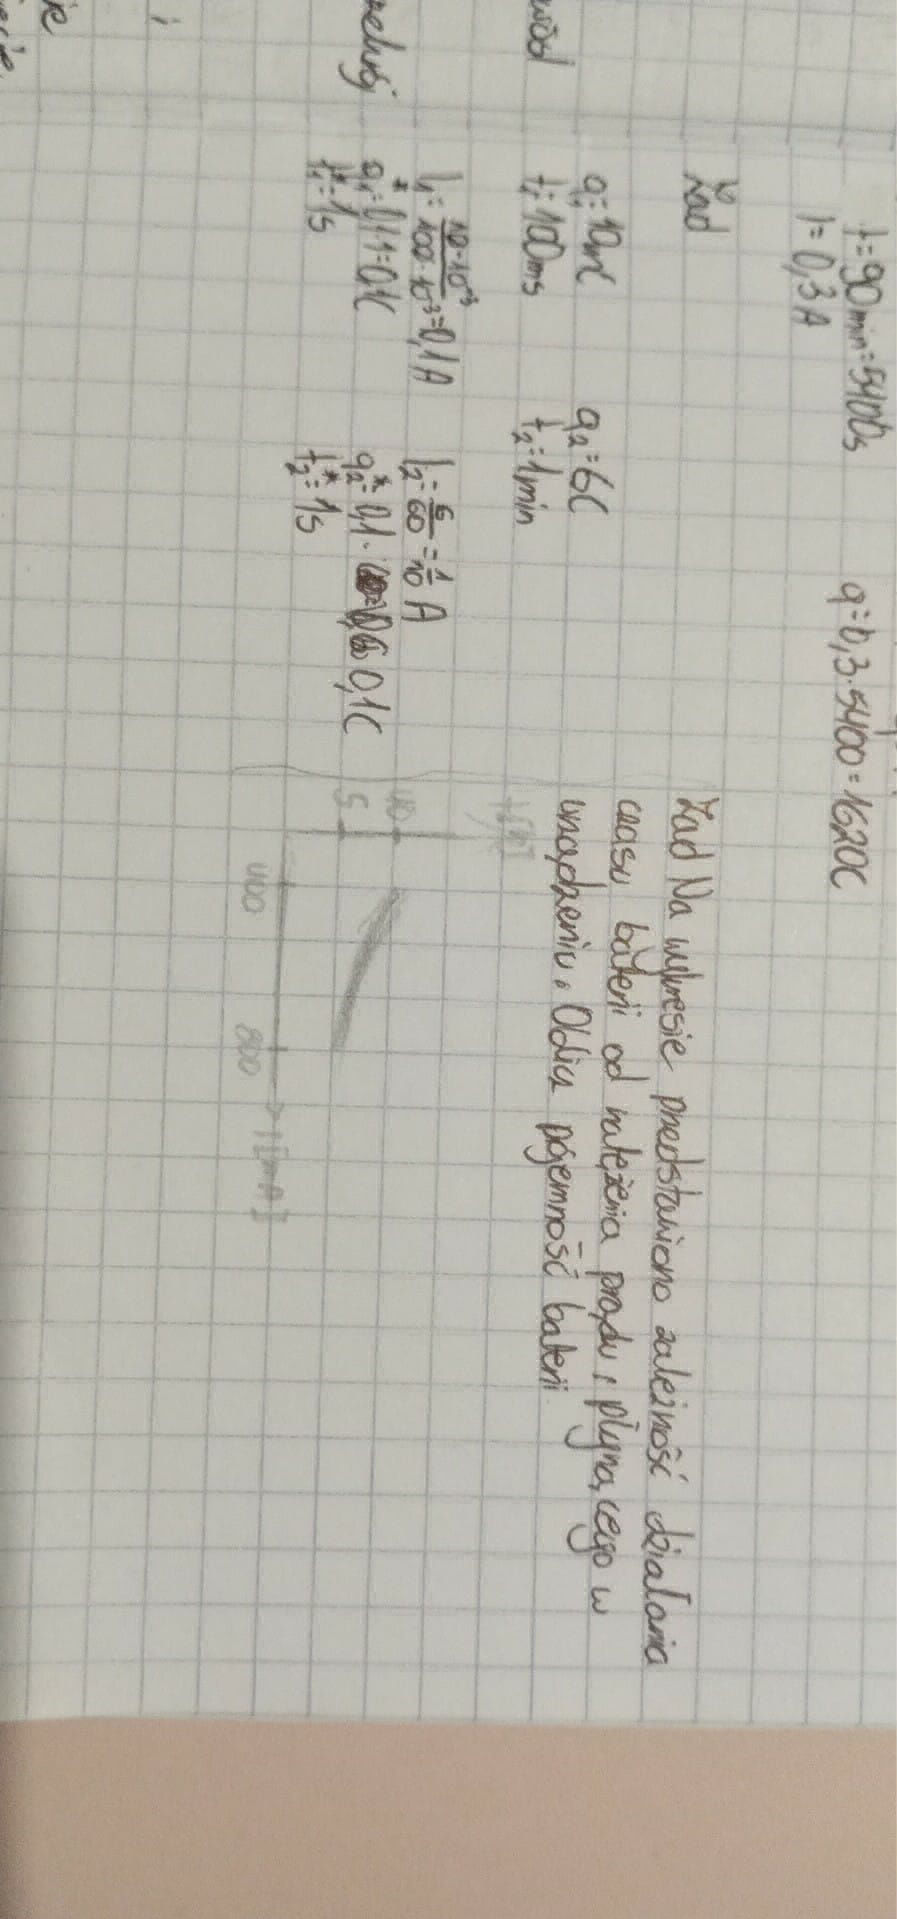 t=90min=5400s
I=0,3A
q=0,3·5400=1620C
Zad
q₁=10mC
t₁=100ms
q₂=6C
t₂=1min
I₁=10·10⁻³/100·10⁻³=0,1A
q₁*=0,1·1=0,1C
t₁*=1s
I₂=6/60=1/10 A
q₂*=0,1· 0,1C
t₂*=1s
Zad Na wykresie przedstawiono zależność działania
czasu baterii od natężenia prądu, płynącego w
urządzeniu. Oblicz pojemność baterii.
t[h]
10
5
400
800
I[mA]